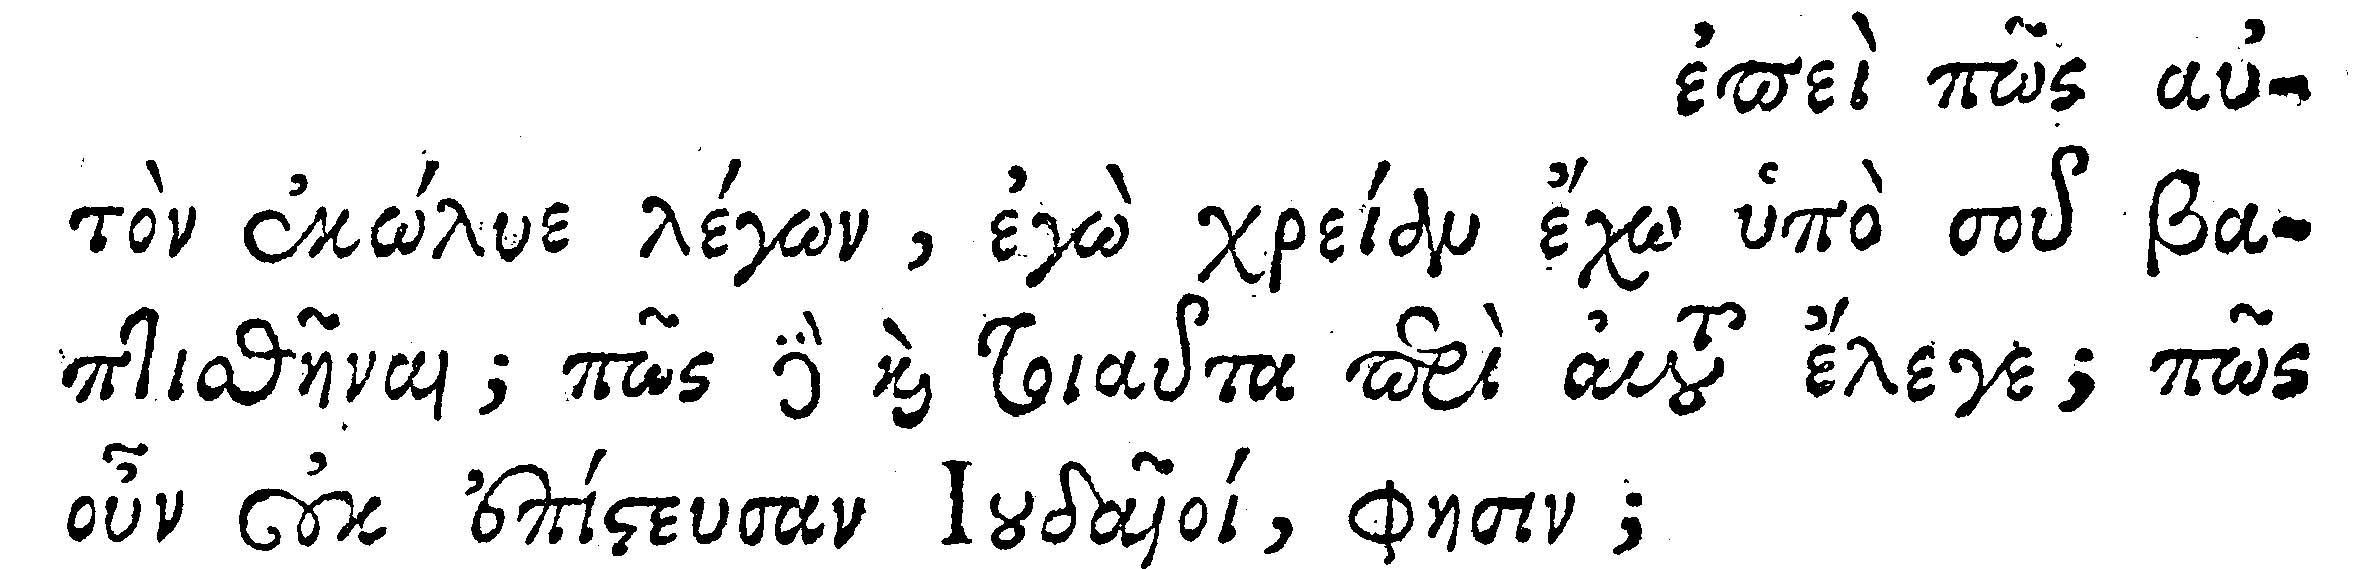 ἐπεὶ πῶς αὐ-
τὸν ἐκώλυε λέγων, ἐγὼ χρείαν ἔχω ὑπὸ σοῦ βα-
πτισθῆναι; πῶς ἢ καὶ τοιαῦτα περὶ αὐτοῦ ἔλεγε; πῶς
οὖν οὐκ ἐπίστευσαν Ιουδαῖοί, φησιν;